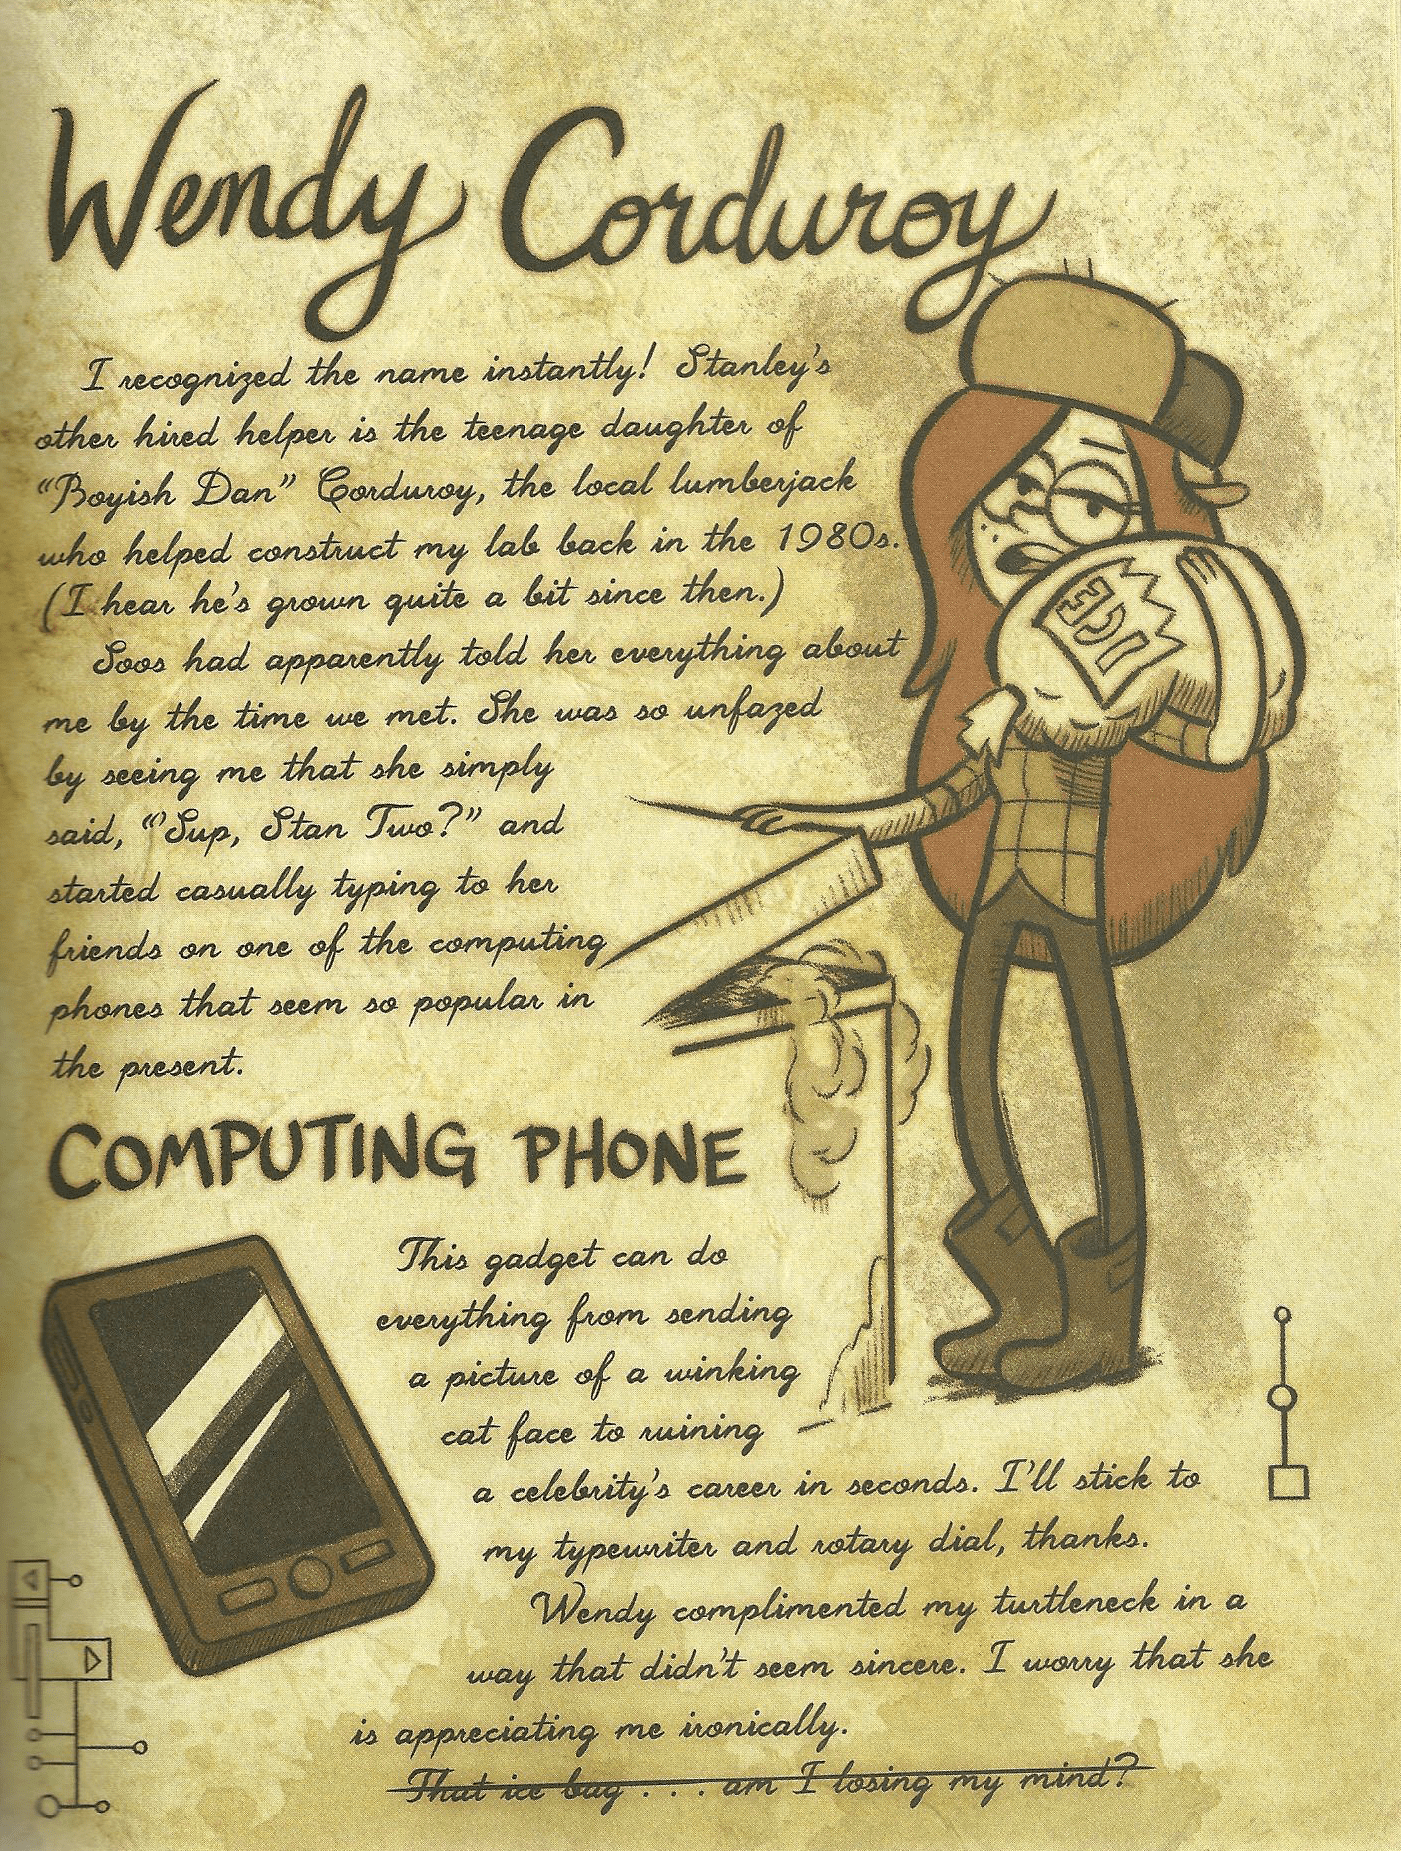 Wendy Corduroy
I recognized the name instantly! Stanley's
other hired helper is the teenage daughter of
"Boyish Dan" Corduroy, the local lumberjack
who helped construct my lab back in the 1980s.
(I hear he's grown quite a bit since then.)
Soos had apparently told her everything about
me by the time we met. She was so unfazed
by seeing me that she simply
said, "'Sup, Stan Two?" and
started casually typing to her
friends on one of the computing
phones that seem so popular in
the present.
ICE
COMPUTING PHONE
This gadget can do
everything from sending
a picture of a winking
cat face to ruining
a celebrity's career in seconds. I'll stick to
my typewriter and rotary dial, thanks.
Wendy complimented my turtleneck in a
way that didn't seem sincere. I worry that she
is appreciating me ironically.
That ice bag . . . am I losing my mind?